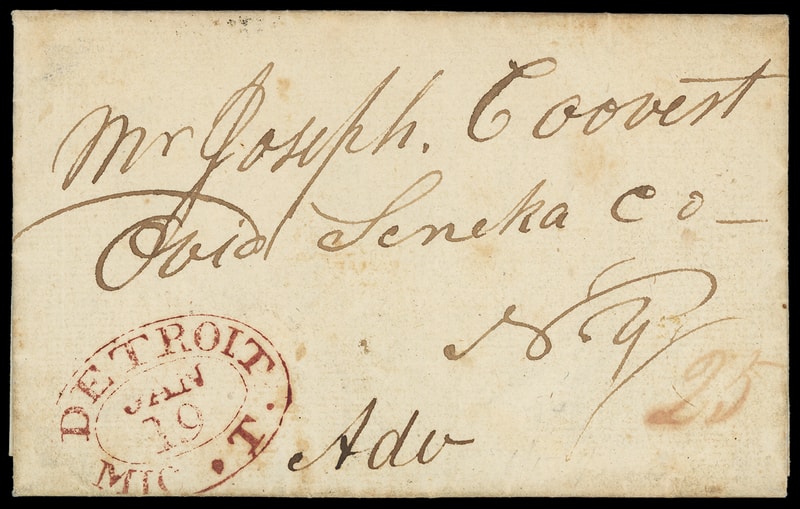 Mr Joseph. Coovert
Ovid Seneka Co_
NY
25
DETROIT. MIC. T.
JAN
19
Adv